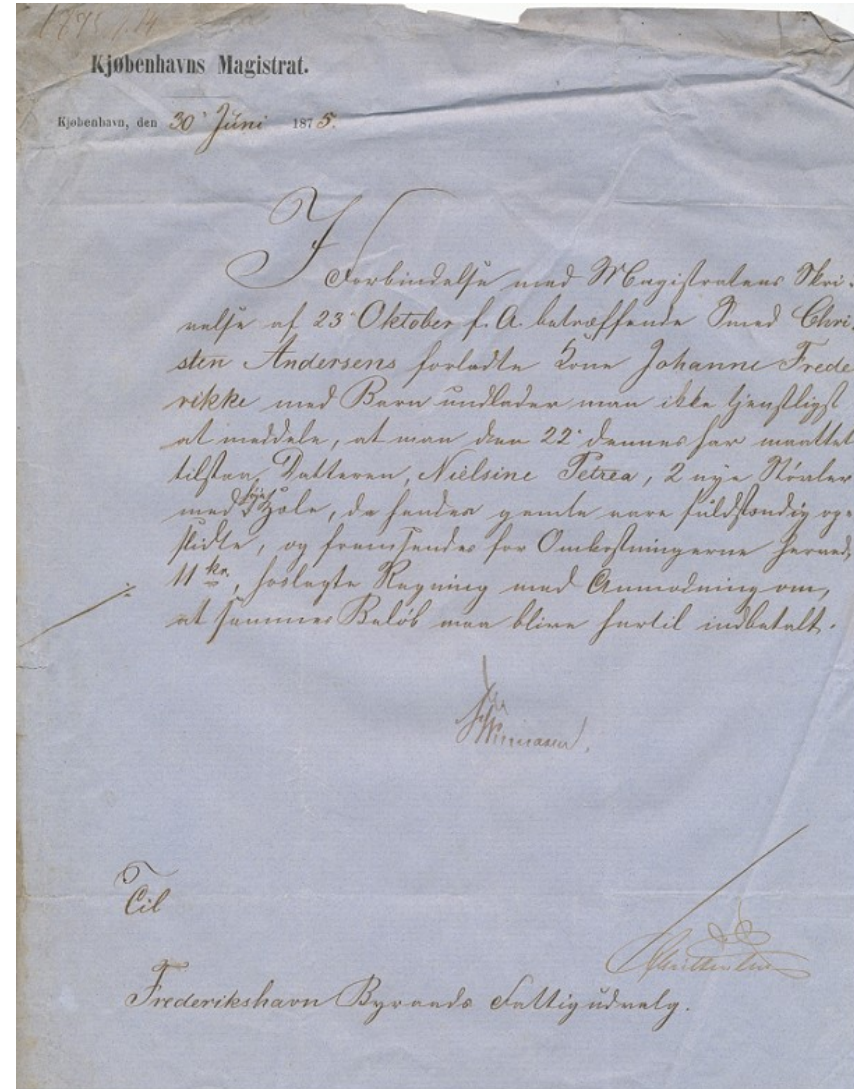 Kjøbenhavns Magistrat.
Kjøbenhavn, den 30' Juni 1875.
I
Forbindelse med Magistratens Skri-
velse af 23' Oktober f. A. betræffende Smed Chri-
sten Andersens forladte Kone Johanne Frede
rikke med Barn undlader man ikke tjenstligst
at meddele, at man den 22' dennes har maattet
tilstaa Datteren, Nielsine Petrea, 2 nye Støvler
med Sole, da hendes gamle vare fuldstændig op-
slidte, og fremsendes for Omkostningerne herved,
11 kr., foslagte Regning med Anmodning om,
at sammes Beløb maa blive hertil indbetalt.
Til
Frederikshavn Byraads Fattigudvalg.